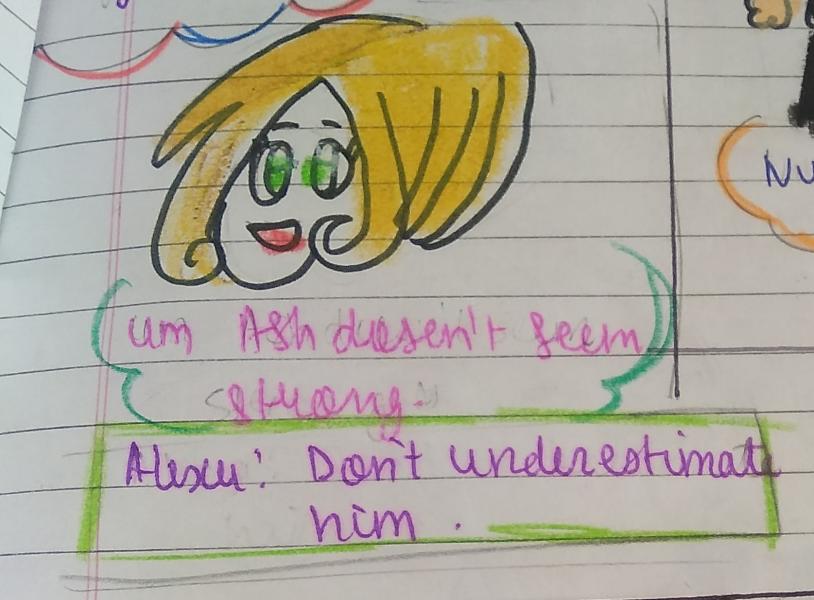 um Ash doesen't seem
strong.
Alexu: Don't underestimate
him.
Nu